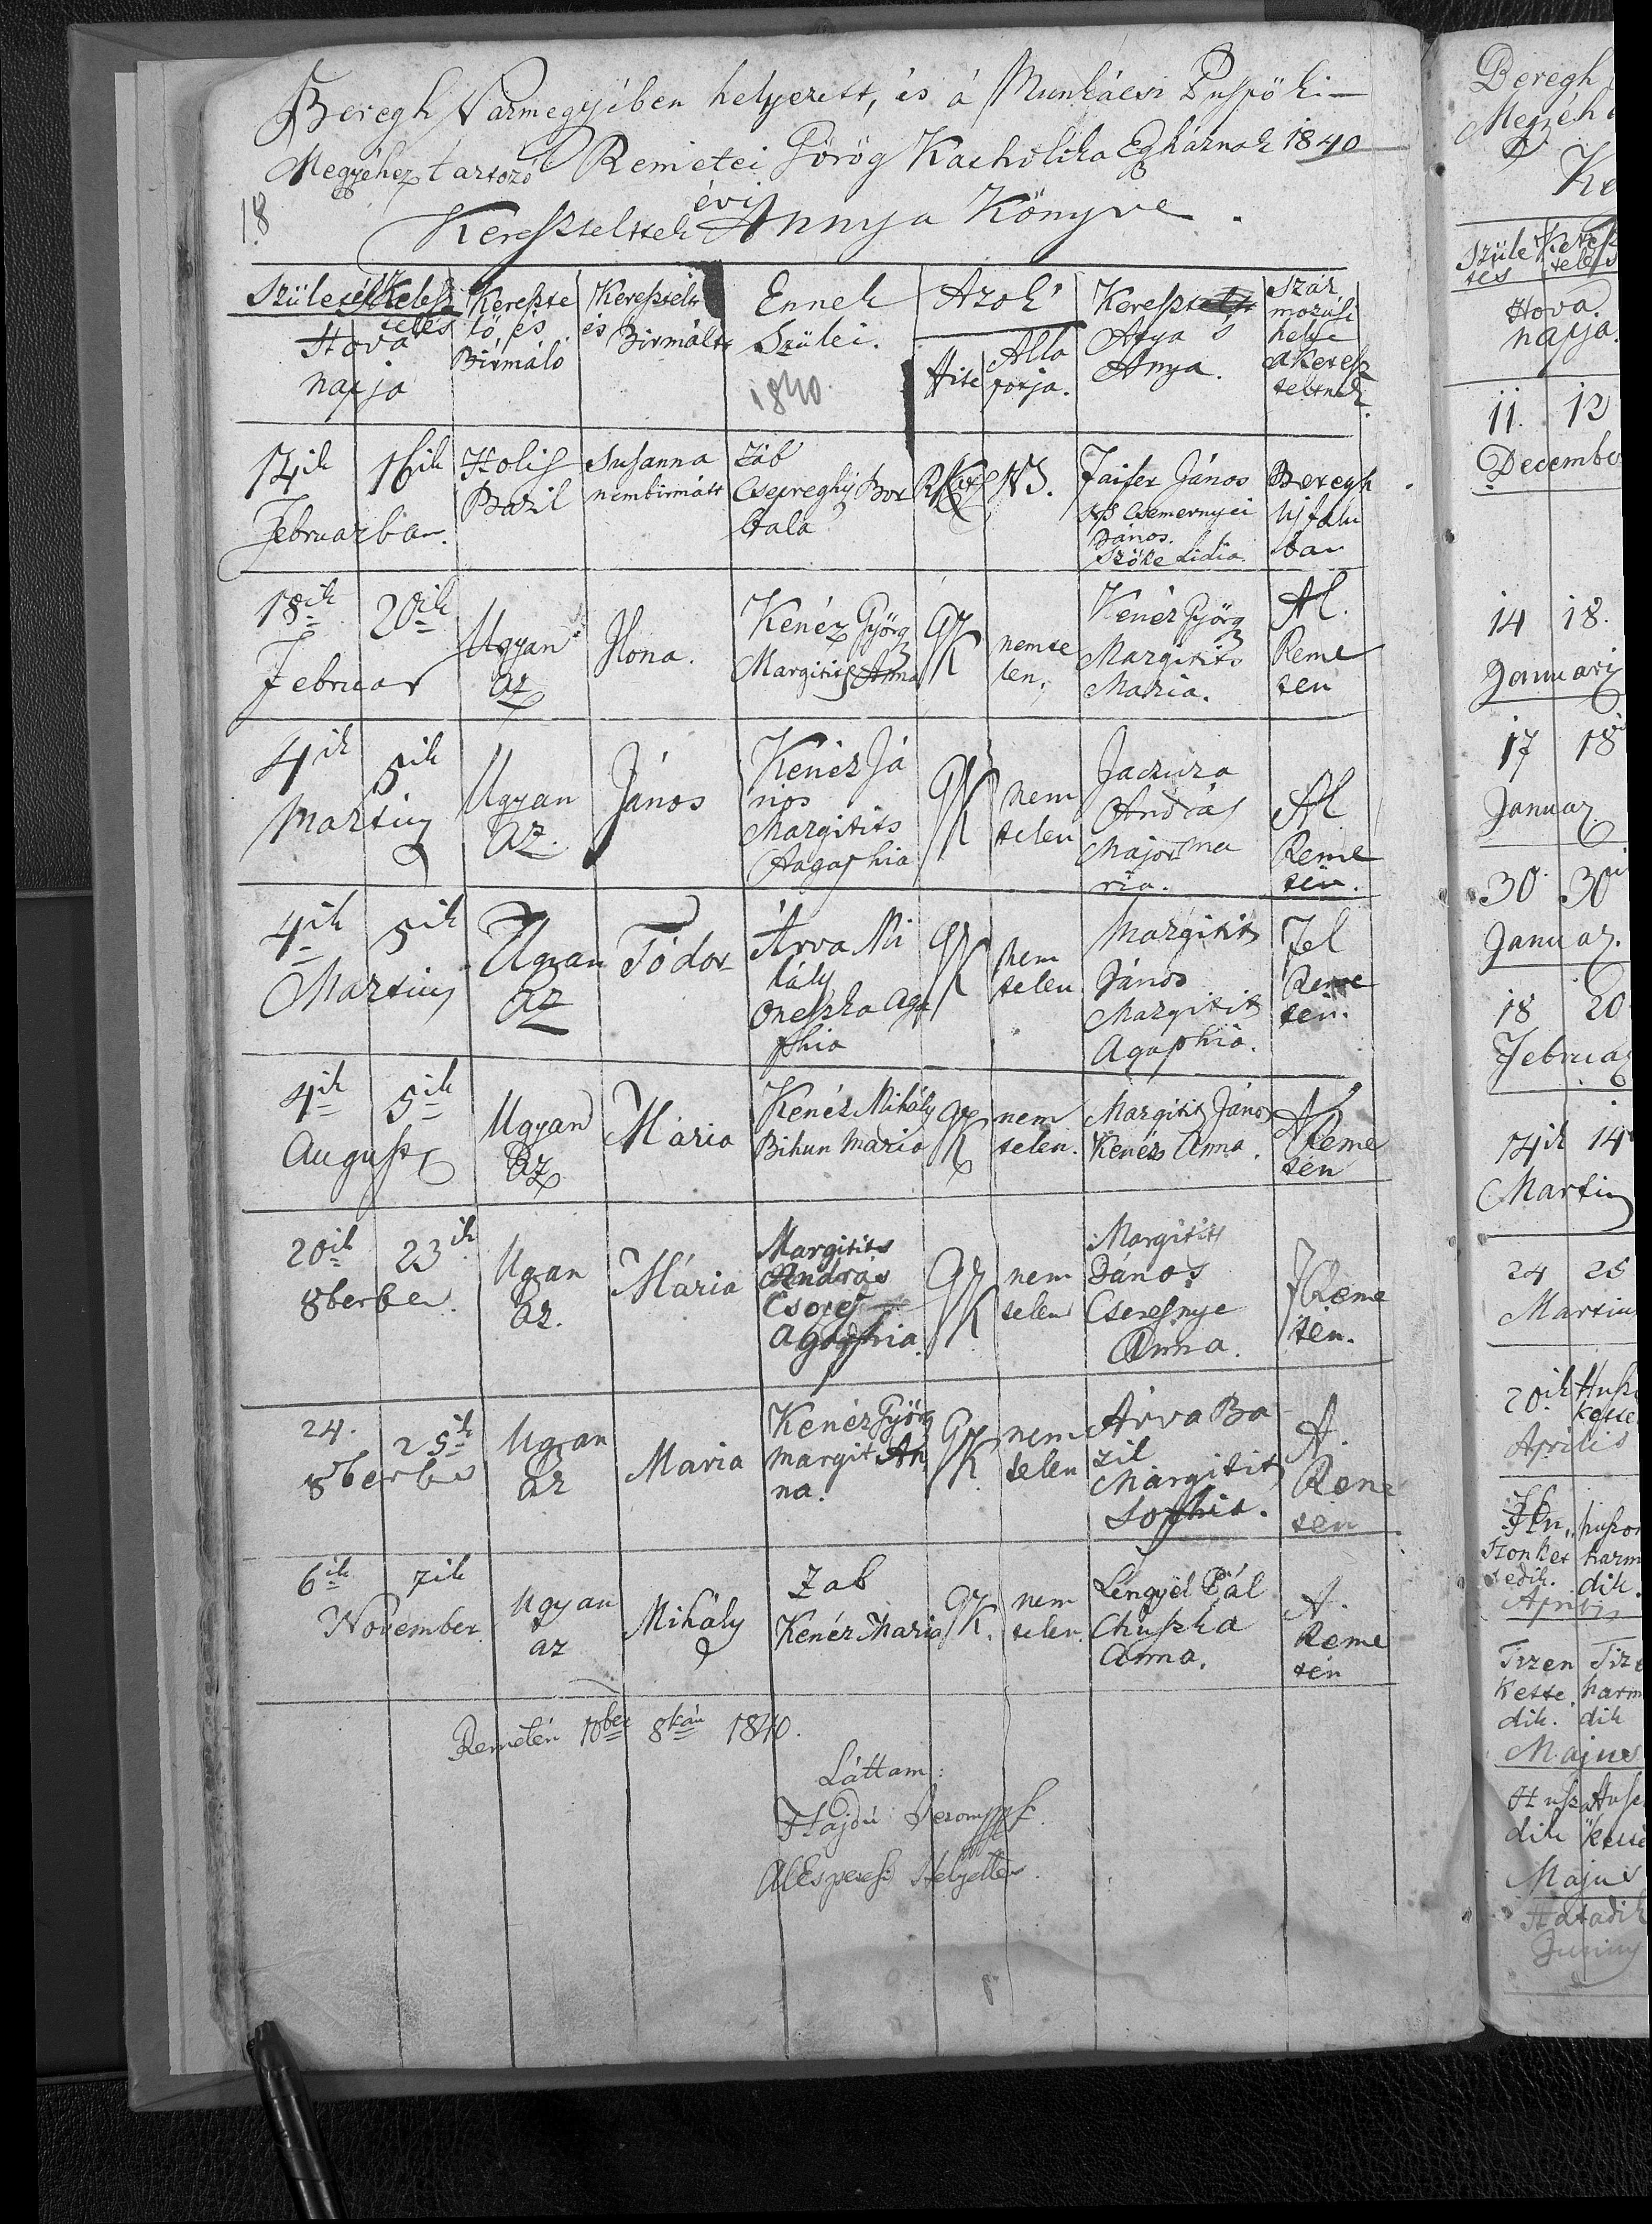 Beregh Varmegyében helyezett, és á Munkácsi Puspöki
Megyéhez tartozó Remetei Görög Katholika Egyháznak 1840
18
évi
Kereſztelttek Annya Könyve.
Születés Kereſz
telés
Hova
napja
Kereſzte
lö és
Birmáló
Kereſztelt
és Birmált
Ennek
Szülei.
1840
Azok
Hite
Alla
potja.
Kereſzt
Atya s
Anya.
Szár
mozási
helye
a Kereſz
teltnek.
14ik 16ik
Februarban.
Holis
Bazil
Susanna
nembirmált
Záb
Csepreghy Bor
bala
RKat
NS.
Faifer János
NS Csemernyei
János.
Szöke Lidia
Beregh
Ujfalu
ban
18ik 20ik
Februar
Ugyan
az
Ilona.
Kenéz Györg
Margitits Anna
GK
nemte
len.
Kenéz Györg
Margitits
Maria.
Al.
Reme
ten
4ik 5ik
Martius
Ugyan
az.
János
Kenéz Já
nos
Margitits
Agaphia
GK
nem
telen
Jaczura
András
Major Ma
ria.
Al
Reme
tén.
4ik 5ik
Martius
Ugyan
az
Tódor
Árva Mi
hály
Oneſzka Aga
phia
GK
nem
telen
Margitits
János
Margitits
Agaphia.
Fel
Reme
tén.
4ik 5ik
Auguſt
Ugyan
az
Mária
Kenéz Mihály
Bihun Maria
GK
nem
telen.
Margitits János
Kenéz Anna.
A Reme
tén
20ik 23ik
8berben.
Ugyan
az.
Mária
Margitits
András
Csopej
Agaphia.
GK
nem
telen
Margitits
János
Csereſnye
Anna.
F Reme
ten.
24. 25ik
8berbe
Ugyan
az
Maria
Kenéz Györg
Margit An
na.
GK
nem
telen
Árva Ba
zil
Margitits
Sophia.
A.
Reme
tén
6ik 7ik
November
Ugyan
az
Mihály
Zab
Kenéz Maria
GK.
nem
telen.
Lengyel Pál
Chuſzka
Anna.
A.
Reme
tén
Remetén 10ber 8kán 1840.
Láttam:
Hajdú
AlEsperesi Helyettes.
Beregh
Megyéh
Ke
Szüle Kereſz
tés telés
Hova
napja.
11. 12
Decembe
14 18.
Januari
17 18
Januar.
30. 30
Januar.
18 20
Februar
14ik 14
Martius
24 25
Martius
20ik Huſz
kette
Aprilis
huſzon
harm
dik.
Aprilis
Tizen Tize
kette harm
dik. dik
Majus
Huſza Huſz
dik kette
Majus
Hatadik
Junius